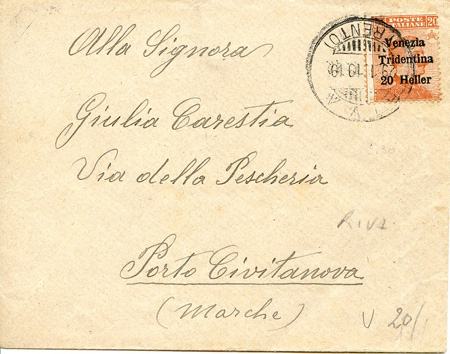 POSTE ITALIANE 20
Venezia
Tridentina
20 Heller
(TRENTO)
Alla Signora
Giulia Carestia
Via della Pescheria
RIVA
Porto Civitanova
(Marche)
V 20/